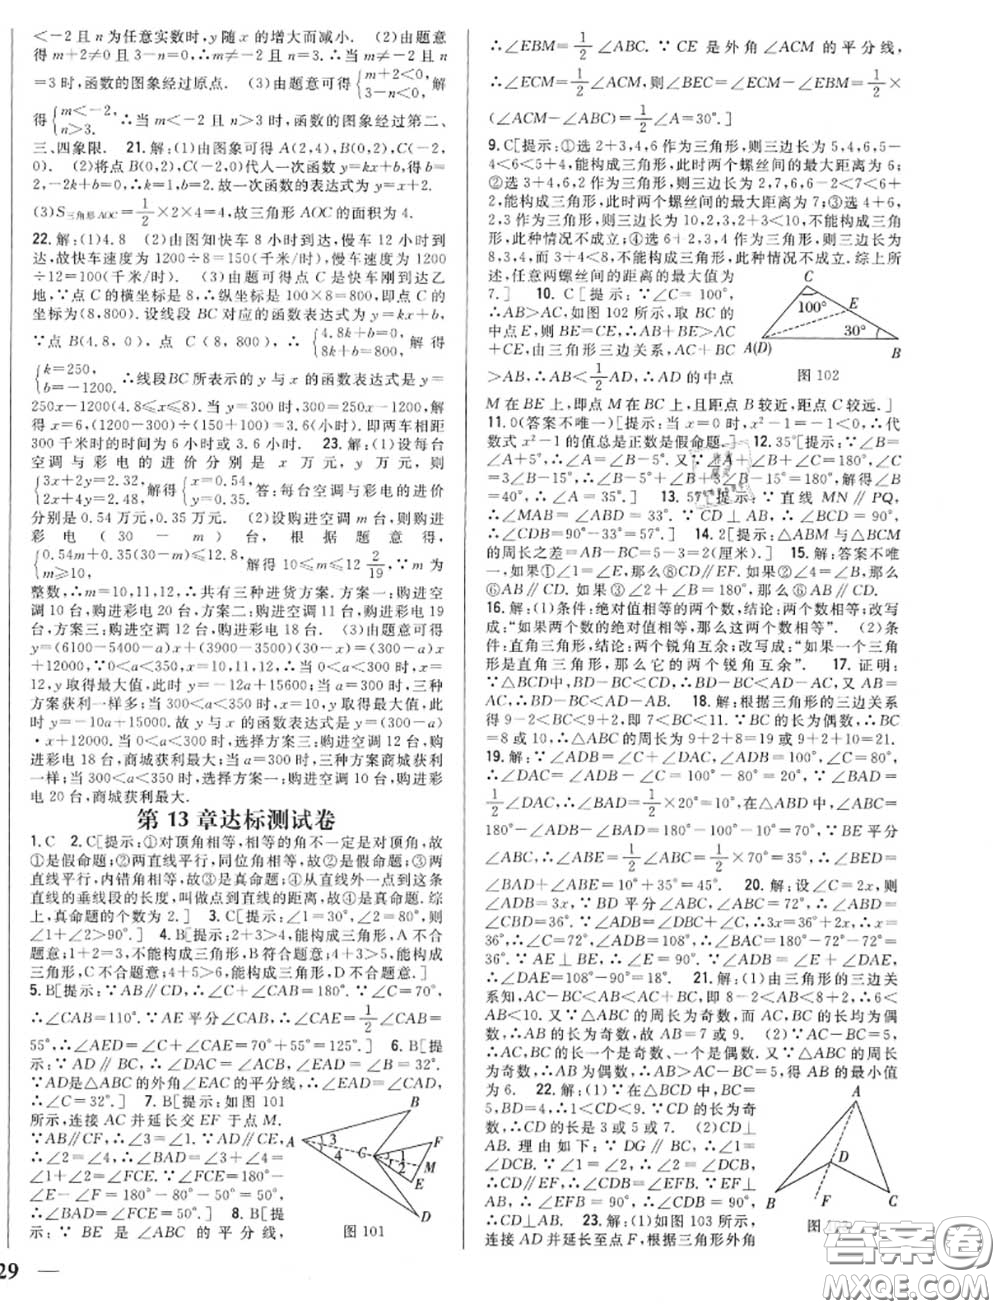 <-2且n为任意实数时,y随x的增大而减小. (2)由题意
得m+2≠0且3-n=0,∴m≠-2且n=3.∴当m≠-2且n
=3时,函数的图象经过原点. (3)由题意可得{m+2<0, 3-n<0. 解
得{m<-2, n>3. ∴当m<-2且n>3时,函数的图象经过第二、
三、四象限. 21.解:(1)由图象可得A(2,4),B(0,2),C(-2,
0). (2)将点B(0,2),C(-2,0)代入一次函数y=kx+b,得b=
2,-2k+b=0,解得k=1,b=2.故一次函数的表达式为y=x+2.
(3)S三角形AOC=1/2×2×4=4,故三角形AOC的面积为4.
22.解:(1)4.8 (2)由图知快车8小时到达,慢车12小时到
达,故快车速度为1200÷8=150(千米/时),慢车速度为1200
÷12=100(千米/时). (3)由题意可得点C是快车刚到达乙
地,∵点C的横坐标是8,∴纵坐标是100×8=800,即点C的
坐标为(8,800).设线段BC对应的函数表达式为y=kx+b,
∵点B(4.8,0),点C(8,800),∴{4.8k+b=0, 8k+b=800. 解得
{k=250, b=-1200. ∴线段BC所表示的y与x的函数表达式是y=
250x-1200(4.8≤x≤8). (4)当y=300时,250x-1200=300,解
得x=6,(1200-300)÷(150+100)=3.6(小时).即两车相距
300千米时的时间为6小时或3.6小时. 23.解:(1)设每台
空调与彩电的进价分别是x万元,y万元,则
{3x+2y=2.32, 2x+4y=2.48, 解得{x=0.54, y=0.35. 答:每台空调与彩电的进价
分别是0.54万元,0.35万元. (2)设购进空调m台,则购进
彩电(30-m)台,根据题意得,
{0.54m+0.35(30-m)≤12.8, m≥10, 解得10≤m≤12 2/19,∵m为
整数,∴m=10,11,12,∴共有三种进货方案.方案一:购进空
调10台,购进彩电20台,方案二:购进空调11台,购进彩电19
台,方案三:购进空调12台,购进彩电18台. (3)由题意可得
y=(6100-5400-a)x+(3900-3500)(30-x)=(300-a)x
+12000.∵0<a<350,x=10,11,12,∴当0<a<300时,x=
12,y取得最大值,此时y=-12a+15600;当a=300时,三种
方案获利一样多;当300<a<350时,x=10,y取得最大值,此
时y=-10a+15000.故y与x的函数表达式是y=(300-a)
·x+12000.当0<a<300时,选择方案三:购进空调12台,购
进彩电18台,商城获利最大;当a=300时,三种方案商城获利
一样;当300<a<350时,选择方案一:购进空调10台,购进彩
电20台,商城获利最大.
第13章达标测试卷
1.C 2.C[提示:①对顶角相等,相等的角不一定是对顶角,故
①是假命题;②两直线平行,同位角相等,故②是假命题;③两
直线平行,内错角相等,故③是真命题;④从直线外一点到这条
直线的垂线段的长度,叫做点到直线的距离,故④是真命题.综
上,真命题的个数为2.] 3.C[提示:∠1=30°,∠2=80°,则
∠1+∠2>90°.] 4.B[提示:2+3>4,能构成三角形,A不合
题意;1+2=3,不能构成三角形,B符合题意;4+3>5,能构成
三角形,C不合题意;4+5>6,能构成三角形,D不合题意.]
5.B[提示:∵AB∥CD,∴∠C+∠CAB=180°.∵∠C=70°,
∴∠CAB=110°.∵AE平分∠CAB,∴∠CAE=1/2∠CAB=
55°,∴∠AED=∠C+∠CAE=70°+55°=125°.] 6.B[提
示:∵AD∥BC,∴∠DAC=∠ACB,∠EAD=∠B=32°.
∵AD是△ABC的外角∠EAC的平分线,∴∠EAD=∠CAD,
∴∠C=32°.] 7.B[提示:如图101
所示,连接AC并延长交EF于点M.
∵AB∥CF,∴∠3=∠1.∵AD∥CE,
∴∠2=∠4,∴∠BAD=∠3+∠4=
∠1+∠2=∠FCE.∵∠FCE=180°-
∠E-∠F=180°-80°-50°=50°,
∴∠BAD=∠FCE=50°.] 8.B[提
示:∵BE是∠ABC的平分线,
B
A
3
4
C
1
2
F
M
E
D
图101
∴∠EBM=1/2∠ABC.∵CE是外角∠ACM的平分线,
∴∠ECM=1/2∠ACM,则∠BEC=∠ECM-∠EBM=1/2×
(∠ACM-∠ABC)=1/2∠A=30°.]
9.C[提示:①选2+3,4,6作为三角形,则三边长为5,4,6,5-
4<6<5+4,能构成三角形,此时两个螺丝间的最大距离为6;
②选3+4,6,2作为三角形,则三边长为2,7,6,6-2<7<6+
2,能构成三角形,此时两个螺丝间的最大距离为7;③选4+
6,2,3作为三角形,则三边长为10,2,3,2+3<10,不能构成三
角形,此种情况不成立;④选6+2,3,4作为三角形,则三边长为
8,3,4,而3+4<8,不能构成三角形,此种情况不成立.综上所
述,任意两螺丝间的距离的最大值为
7.] 10.C[提示:∵∠C=100°,
∴AB>AC,如图102所示,取BC的
中点E,则BE=CE,∴AB+BE>AC
+CE,由三角形三边关系,AC+BC
>AB,∴AB<1/2AD,∴AD的中点
C
100°
E
30°
A(D)
B
图102
M在BE上,即点M在BC上,且距点B较近,距点C较远.]
11.0(答案不唯一)[提示:当x=0时,x²-1=-1<0,∴代
数式x²-1的值总是正数是假命题.] 12.35°[提示:∵∠B=
∠A+5°,∴∠A=∠B-5°.又∵∠A+∠B+∠C=180°,∠C
=3∠B,∴∠B-5°+∠B+3∠B-5°... =180°,解得∠B
=40°,∴∠A=35°.] 13.57°[提示:∵直线MN∥PQ,
∴∠MAB=∠ABD=33°.∵CD⊥AB,∴∠BCD=90°,
∴∠CDB=90°-33°=57°.] 14.2[提示:△ABM与△BCM
的周长之差=AB-BC=5-3=2(厘米).] 15.解:答案不唯
一,如果①∠1=∠2,那么⑤CD∥EF.如果②∠4=∠B,那么
⑥AB∥CD.如果③∠2+∠B=180°,那么⑥AB∥CD.
16.解:(1)条件:绝对值相等的两个数,结论:两个数相等;改写
成:“如果两个数的绝对值相等,那么这两个数相等”. (2)条
件:直角三角形,结论:两个锐角互余;改写成:“如果一个三角
形是直角三角形,那么它的两个锐角互余”. 17.证明:
∵△BCD中,BD-BC<CD,∴BD-AD<AC.又AB=AC,
∴BD-AD<AB,∴BD<AD+AB. 18.解:根据三角形的三边关系
得9-2<BC<9+2,即7<BC<11.∵BC的长为偶数,∴BC
=8或10,∴△ABC的周长为9+2+8=19或9+2+10=21.
19.解:∵∠ADB=∠C+∠DAC,∠ADB=100°,∠C=80°,
∴∠DAC=∠ADB-∠C=100°-80°=20°.∵∠BAD=
1/2∠DAC,∴∠BAD=1/2×20°=10°,在△ABD中,∠ABC=
180°-∠ADB-∠BAD=180°-100°-10°=70°.∵BE平分
∠ABC,∴∠ABE=1/2∠ABC=1/2×70°=35°,∴∠BED=
∠BAD+∠ABE=10°+35°=45°. 20.解:设∠C=2x,则
∠ADB=3x,∵BD平分∠ABC,∠ABC=∠C=2x,∴∠DBC=x,...∠ABD=
∠CBD=36°.∵∠ADB=∠DBC+∠C,∴3x=36°+2x,∴x=
36°,∴∠C=72°,∠ADB=108°,∴∠BAC=180°-∠ABC-
∠C=36°.∵AE⊥BD,∴∠AED=90°.∵∠ADB=∠E+∠DAE,
∴∠DAE=108°-90°=18°. 21.解:(1)由三角形的三边关
系知,AC-BC<AB<AC+BC,即8-2<AB<8+2,∴6<
AB<10.又∵△ABC的周长为奇数,而AC,BC的长均为偶
数,∴AB的长为奇数,故AB=7或9. (2)∵AC-BC=5,
∴AC,BC的长一个是奇数、一个是偶数.又∵△ABC的周长
为奇数,∴AB的长为偶数,∴AB>AC-BC=5,得AB的最小值
为6. 22.解:(1)∵在△BCD中,BC=
5,BD=4,∴1<CD<9.∵CD的长为奇
数,∴CD的长是3或5或7. (2)CD⊥
AB.理由如下:∵DG∥BC,∴∠1=
∠DCB.∵∠1=∠2,∴∠2=
∠DCB,∴CD∥EF.∵EF⊥
AB,∴∠EFB=90°,∴∠CDB=90°,
∴CD⊥AB. 23.解:(1)如图103所示,
连接AD并延长至点F,根据三角形外角
A
D
B
F
C
图103
29
答案圈
MXQE.COM